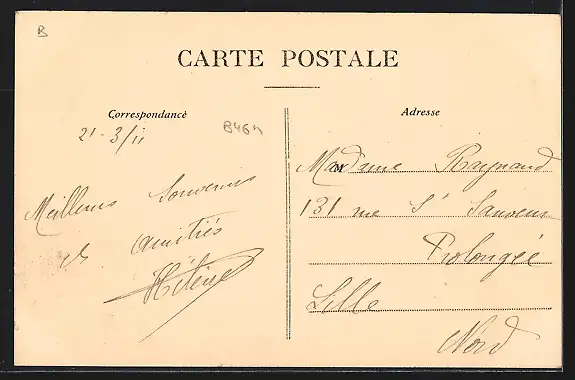 B
CARTE POSTALE
Correspondance
Adresse
21-3/11
B464
Meilleurs Souvenirs
et amitiés
Hélène
Madame Raynaud
131 rue St Sauveur
Prolongée
Lille
Nord